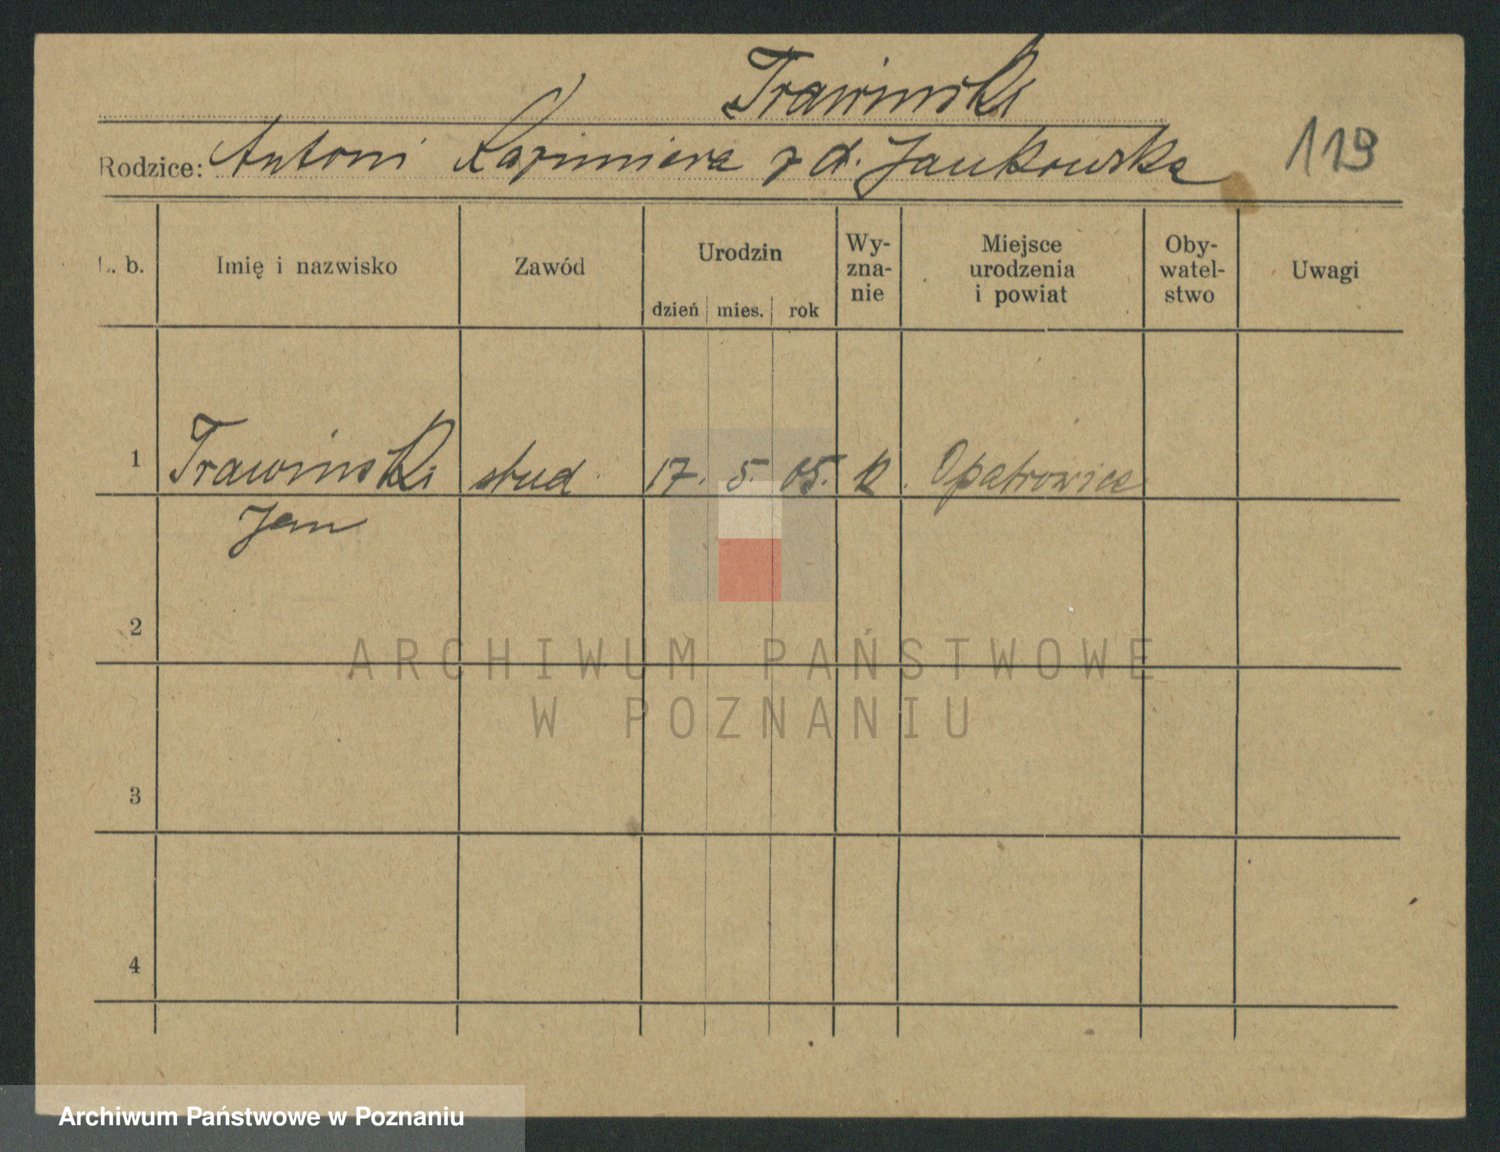 Trawiński
Rodzice: Antoni Kazimiera z d. Jankowska 119
L. b. Imię i nazwisko Zawód Urodzin dzień mies. rok Wy-zna-nie Miejsce urodzenia i powiat Oby-watel-stwo Uwagi
1 Trawiński stud. 17. 5. 05. k. Opatrowice
Jan
2
ARCHIWUM PAŃSTWOWE
W POZNANIU
3
4
Archiwum Państwowe w Poznaniu